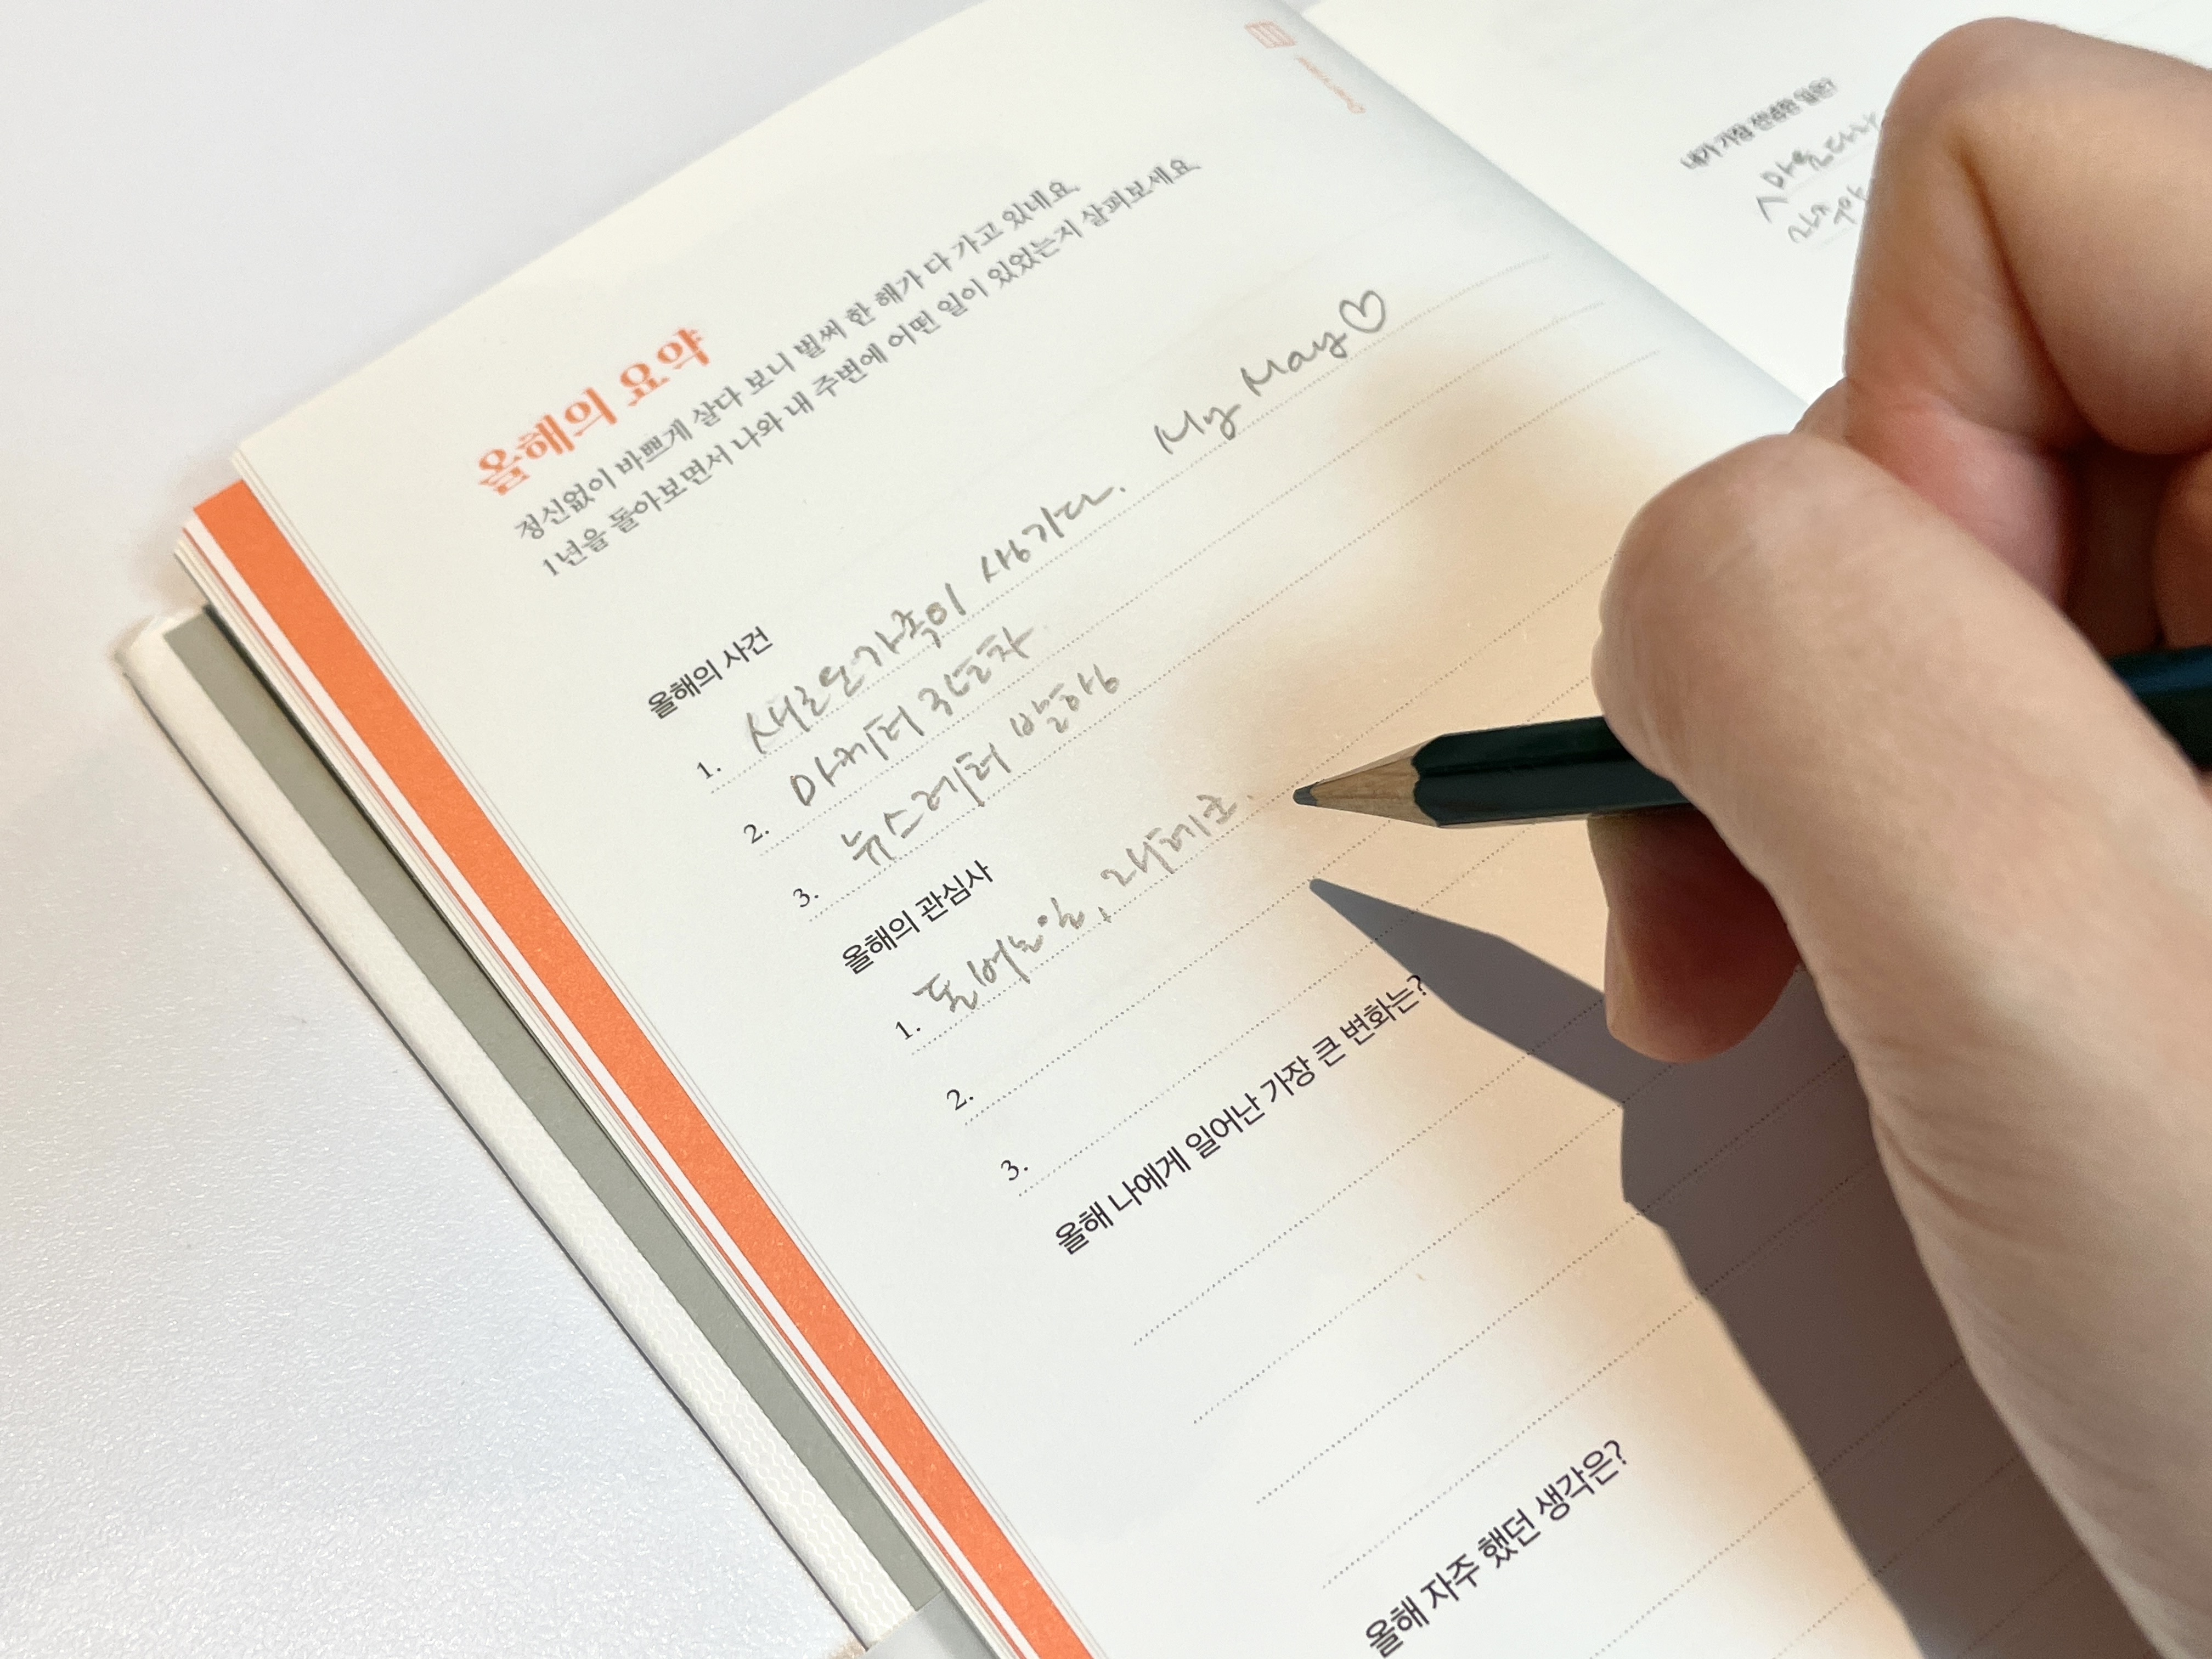 올해의 요약
정신없이 바쁘게 살다 보니 벌써 한 해가 다 가고 있네요.
1년을 돌아보면서 나와 내 주변에 어떤 일이 있었는지 살펴보세요.
올해의 사건
1. 새로운 가족이 생기다. My May♡
2. 마케터 3년차
3. 뉴스레터 발행
올해의 관심사
1. 돈 버는 일, 재테크.
2.
3.
올해 나에게 일어난 가장 큰 변화는?
올해 자주 했던 생각은?
내가 가장 잘한 일은?